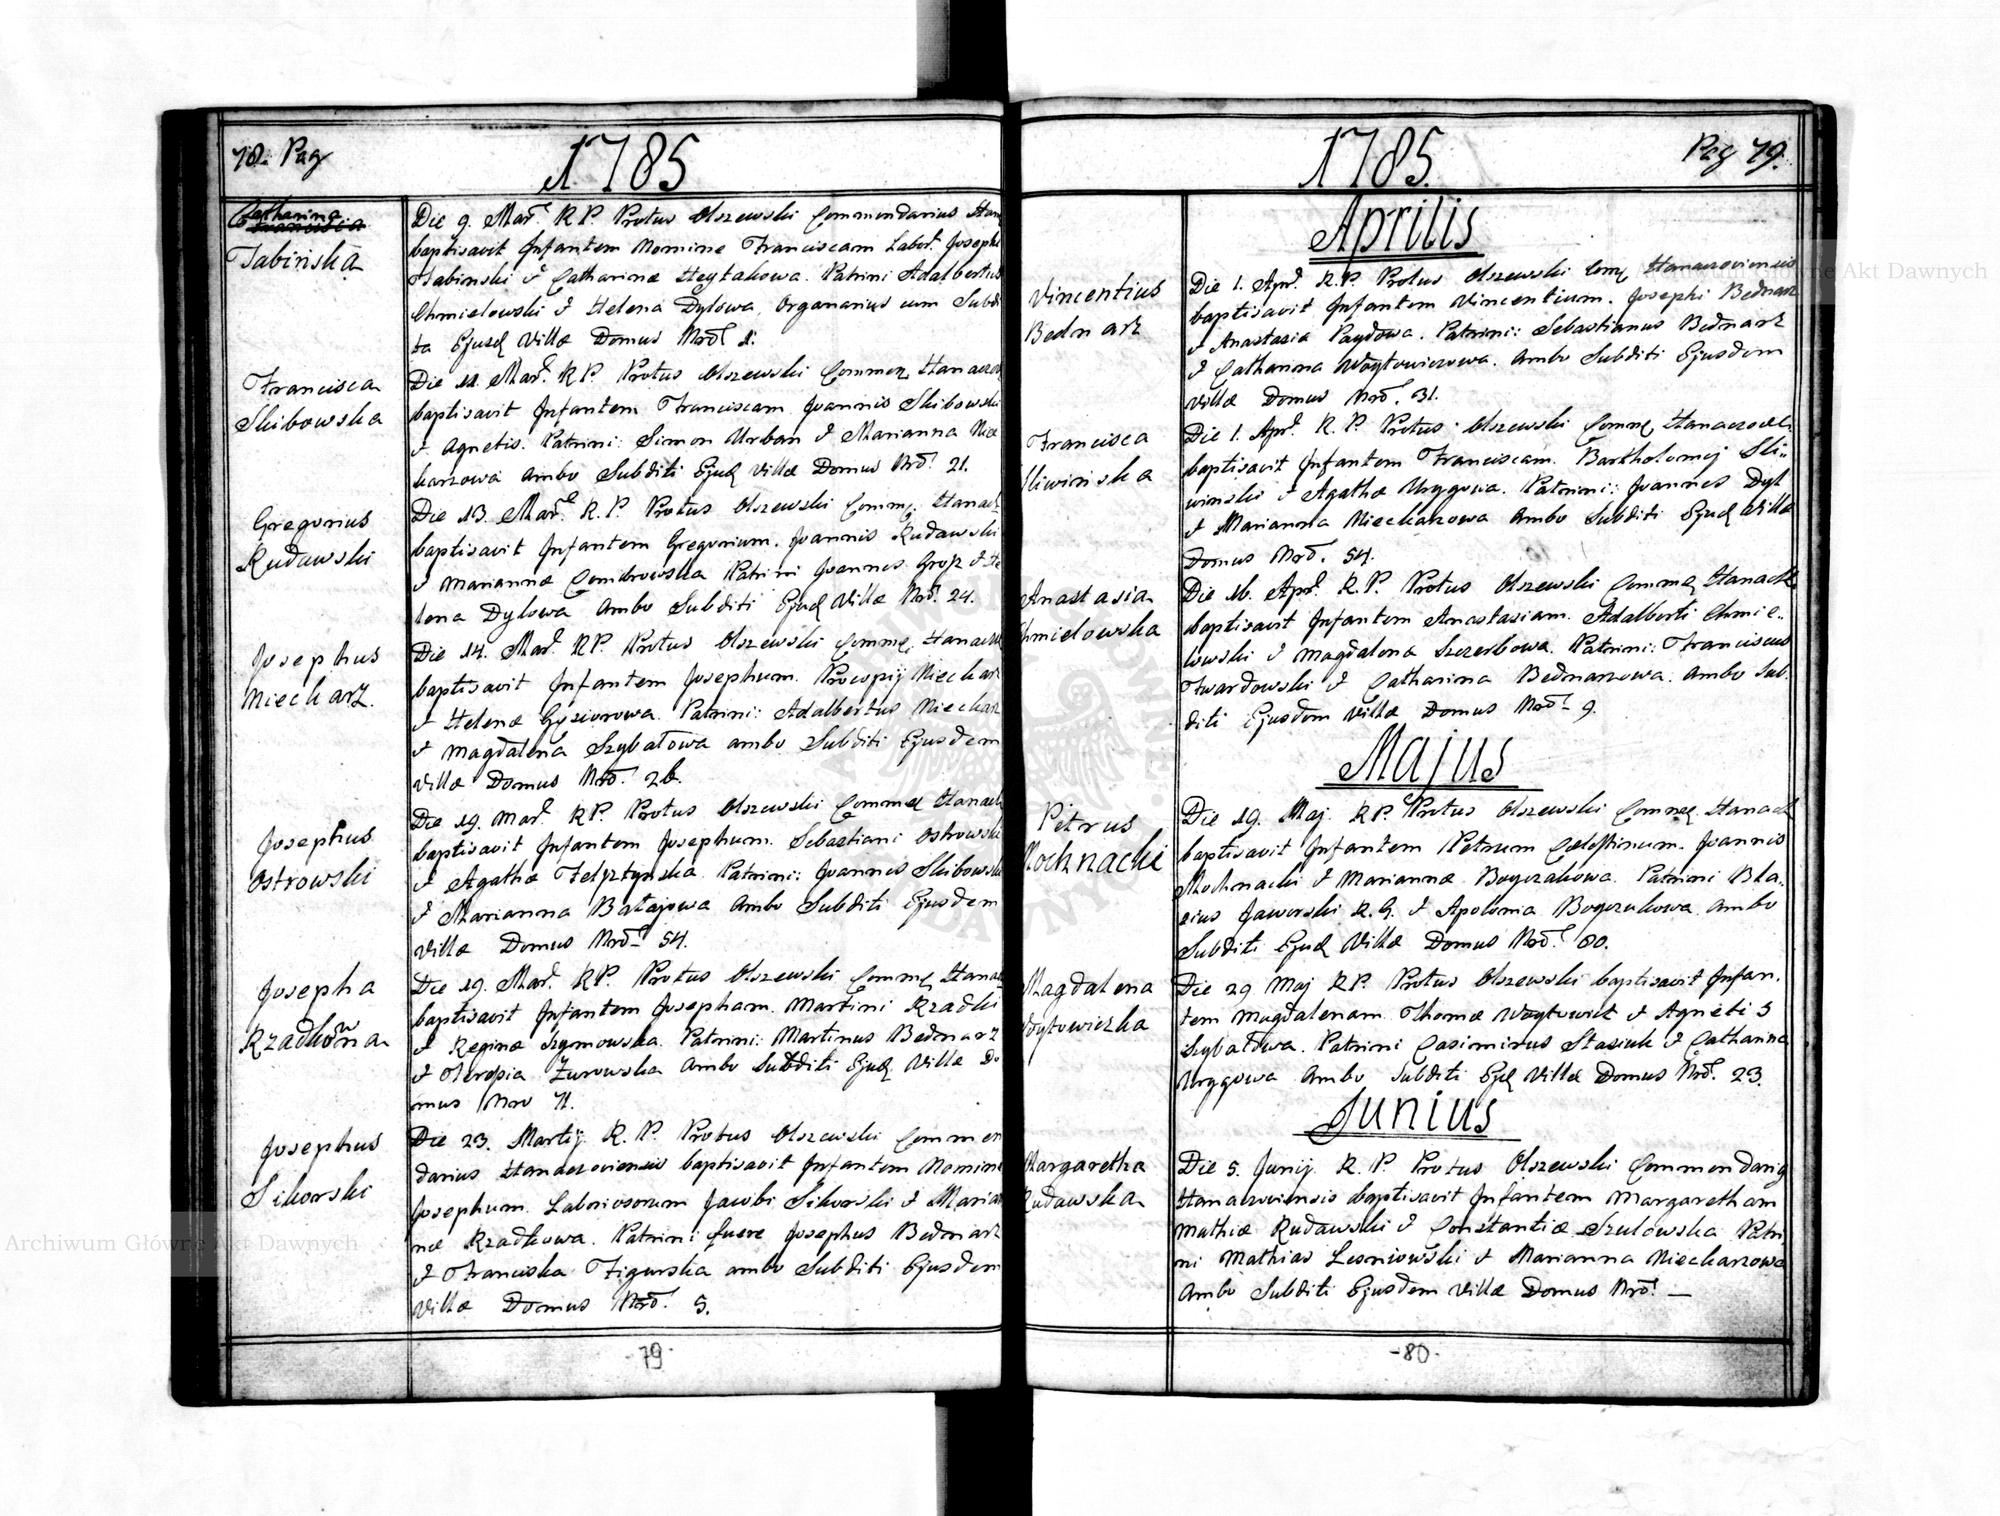 78. Pag
1785
Catharina
Francisca
Tabińska
Die 9. Mar. R P. Protus Olszewski Commendarius Hana
baptisavit Infantem Nomine Franciscam Labor. Josephi
Tabinski & Catharinæ Heytakowa. Patrini Adalbertus
Chmielowski & Helena Dylowa, Organarius cum Subdi
ta Ejusd Villæ Domus Nrō 1.
Francisca
Skibowska
Die 11. Mar. RP. Protus Olszewski Commen Hanaczov
baptisavit Infantem Franciscam Joannis Skibowski
& Agnetis. Patrini: Simon Urban & Marianna Mie
karzowa ambo Subditi Ejusd Villæ Domus Nrō 21.
Gregorius
Rudawski
Die 13. Mar. R. P. Protus Olszewski Comm. Hanacz
baptisavit Infantem Gregorium. Joannis Rudawski
& Mariannæ Cembrowska Patrini Joannes Grosz & He
lena Dylowa ambo Subditi Ejusd Villæ Nrō. 24.
Josephus
Miecharz.
Die 14. Mar. RP. Protus Olszewski Comme Hanacz
baptisavit Infantem Josephum. Procopij Miecharz
& Helenæ Gąsiorowa. Patrini: Adalbertus Miecharz
& Magdalena Szybatowa ambo Subditi Ejusdem
Villæ Domus Nrō. 26.
Josephus
Ostrowski
Die 19. Mar. RP. Protus Olszewski Comme Hanacz
baptisavit Infantem Josephum. Sebastiani Ostrowski
& Agathæ Felsztyńska. Patrini: Joannes Skibowski
& Marianna Batajowa ambo Subditi Ejusdem
Villæ Domus Nrō 54.
Josepha
Rzadkowna
Die 19. Mar. RP. Protus Olszewski Comme Hanac
baptisavit Infantem Josepham. Martini Rzadki
& Reginæ Szymowska. Patrini: Martinus Bednarz
& Żurowska ambo Subditi Ejusd Villæ Do
mus Nro 71.
Josephus
Sikorski
Die 23. Martij R. P. Protus Olszewski Commen
darius Hanaczoviensis baptisavit Infantem Nomine
Josephum. Laboriosorum Jacobi Sikorski & Marian
næ Rzadkowa. Patrini fuere Josephus Bednarz
& Franciska Figurska ambo Subditi Ejusdem
Villæ Domus Nrō. 5.
-79-
1785.
Pag 79.
Aprilis
Vincentius
Bednarz
Die 1. Apr. R.P. Protus Olszewski Come Hanaczoviensis
baptisavit Infantem Vincentium. Josephi Bednarz
& Anastasia Paydowa. Patrini: Sebastianus Bednarz
& Catharina Woytowiczowa. ambo Subditi Ejusdem
Villæ Domus Nrō. 31.
Francisca
Sliwińska
Die 1. Apr. R. P. Protus Olszewski Comme Hanaczovi
baptisavit Infantem Franciscam. Bartholomej Sli
winski & Agathæ Urygowa. Patrini: Joannes Dyl
& Marianna Miecharzowa ambo Subditi Ejusd Villæ
Domus Nrō. 54.
Anastasia
Chmielowska
Die 16. Apr. R. P. Protus Olszewski Comme Hanacz
baptisavit Infantem Anastasiam. Adalberti Chmie
lowski & Magdalena Szczerbowa. Patrini: Franciscus
Twardowski & Catharina Bednarzowa. ambo Sub
diti Ejusdem Villæ Domus Nrō 9.
Majus
Petrus
Mochnacki
Die 19. Maj. RP Protus Olszewski Comme Hanacz
baptisavit Infantem Petrum Cœlestinum. Joannis
Mochnacki & Mariannæ Boyczakowa. Patrini Bla
zius Jaworski R.G. & Apolonia Boyczukowa ambo
Subditi Ejusd Villæ Domus Nrō. 60.
Magdalena
Woytowiczka
Die 29 Maj RP. Protus Olszewski baptisavit Infan
tem Magdalenam. Thomæ Woytowicz & Agnetis
Szybatowa. Patrini Casimirus Stasiuk & Catharina
Urygowa ambo Subditi Ejusd Villæ Domus Nrō. 23.
Junius
Margaretha
Rudawska
Die 5. Junij. R. P. Protus Olszewski Commendarius
Hanaczoviensis baptisavit Infantem Margaretham
Mathiæ Rudawski & Constantiæ Szulowska Patri
ni Mathias Lesniowski & Marianna Miecharzowa
ambo Subditi Ejusdem Villæ Domus Nrō. —
-80-
Archiwum Główne Akt Dawnych
Archiwum Główne Akt Dawnych